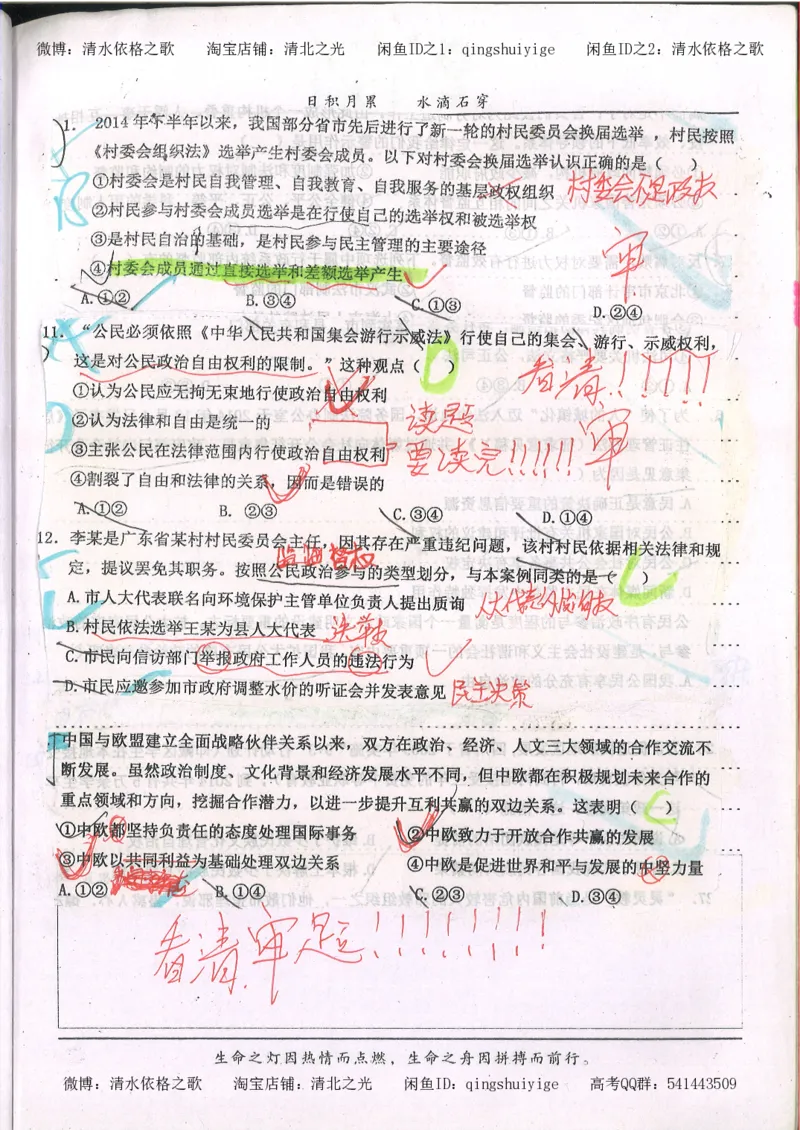 微博：清水依格之歌 淘宝店铺：清北之光 闲鱼ID之1：qingshuiyige 闲鱼ID之2：清水依格之歌
日积月累 水滴石穿
1. 2014年下半年以来，我国部分省市先后进行了新一轮的村民委员会换届选举，村民按照
《村委会组织法》选举产生村委会成员。以下对村委会换届选举认识正确的是（ ）
B
①村委会是村民自我管理、自我教育、自我服务的基层政权组织 村委会不是政权
②村民参与村委会成员选举是在行使自己的选举权和被选举权
③是村民自治的基础，是村民参与民主管理的主要途径
审
④村委会成员通过直接选举和差额选举产生
A.①② B.③④ C.①③ D.②④
11. “公民必须依照《中华人民共和国集会游行示威法》行使自己的集会、游行、示威权利，
这是对公民政治自由权利的限制。”这种观点（ ） D
看清！！！！！
①认为公民应无拘无束地行使政治自由权利
D
②认为法律和自由是统一的 读题
审
③主张公民在法律范围内行使政治自由权利 要读完！！！！！！
④割裂了自由和法律的关系，因而是错误的
A.①② B. ②③ C.③④ D.①④
12. 李某是广东省某村村民委员会主任，因其存在严重违纪问题，该村村民依据相关法律和规
监督权
定，提议罢免其职务。按照公民政治参与的类型划分，与本案例同类的是（ ） C
A.市人大代表联名向环境保护主管单位负责人提出质询
B.村民依法选举王某为县人大代表 选举
C.市民向信访部门举报政府工作人员的违法行为
D.市民应邀参加市政府调整水价的听证会并发表意见 民主决策
中国与欧盟建立全面战略伙伴关系以来，双方在政治、经济、人文三大领域的合作交流不
断发展。虽然政治制度、文化背景和经济发展水平不同，但中欧都在积极规划未来合作的
重点领域和方向，挖掘合作潜力，以进一步提升互利共赢的双边关系。这表明（ ） C
①中欧都坚持负责任的态度处理国际事务 ②中欧致力于开放合作共赢的发展
③中欧以共同利益为基础处理双边关系 ④中欧是促进世界和平与发展的中坚力量
A.①② B.①④ C.②③ D.③④
看清审题！！！！！！！！
生命之灯因热情而点燃，生命之舟因拼搏而前行。
微博：清水依格之歌 淘宝店铺：清北之光 闲鱼ID：qingshuiyige 高考QQ群：541443509